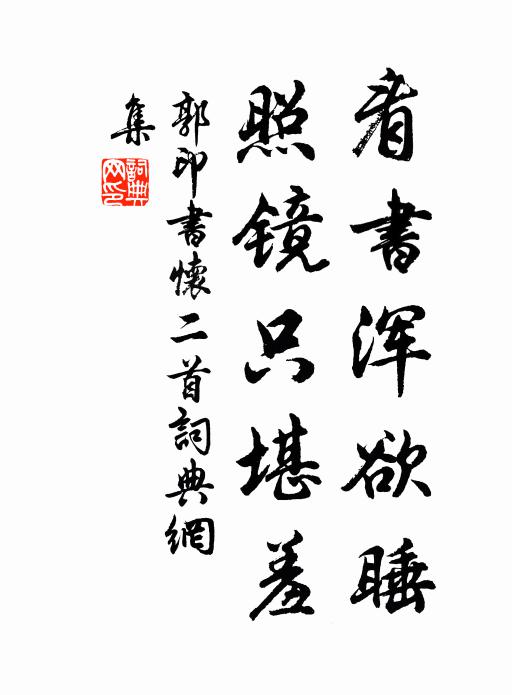 看書浑欲睡
照镜只堪羞
郭印書懷二首詞典網
集
詞典
网印